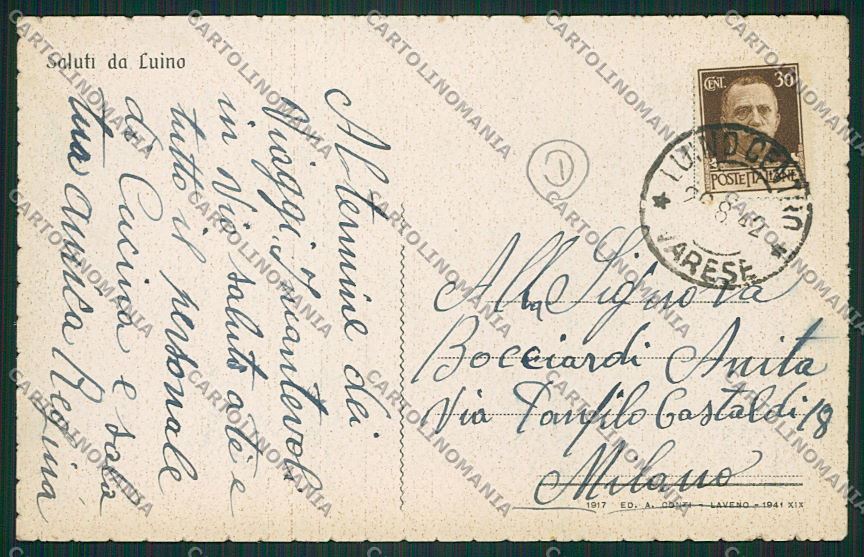 Saluti da Luino
Al termine dei
Viaggi
in Via saluto a te e
tutto il personale
di Cucina e sala
tua amica Regina
CENT. 30
POSTE ITALIANE
LUINO CENTRO
8.42
VARESE
Alla Signora
Bocciardi Anita
Via Panfilo Castaldi 18
Milano
1917 ED. A. CONTI - LAVENO - 1941 XIX
CARTOLINOMANIA